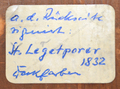 a. d. Rückseite
signiert:
St. Legetporer
1832